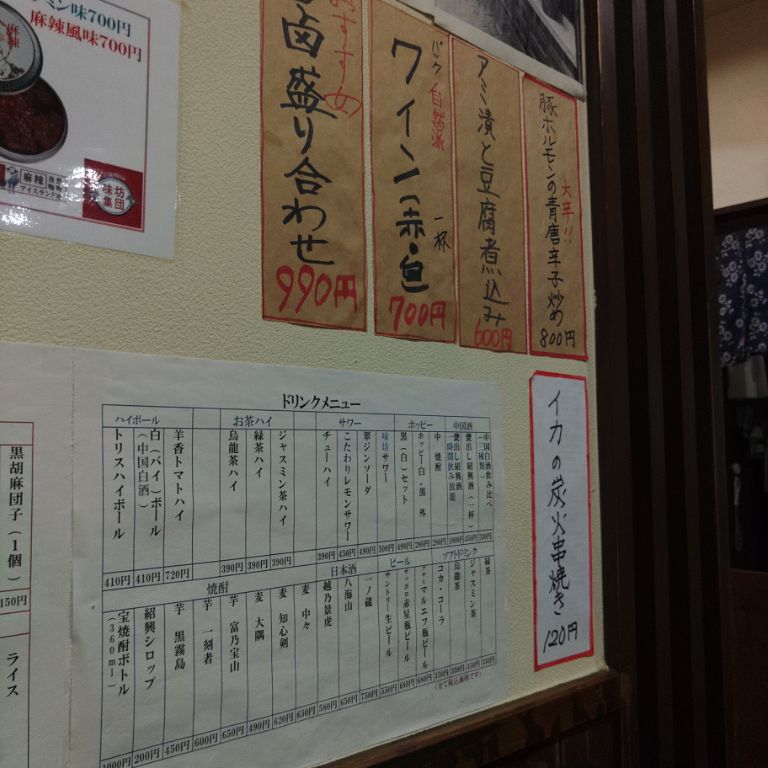 ミン味700円
麻辣風味700円
麻辣
味坊集団
おすすめ
卤盛り合わせ
990円
パック 自然派
ワイン(赤・白)
一杯
700円
アミ漬と豆腐煮込み
600円
大辛!!
豚ホルモンの青唐辛子炒め
800円
イカの炭火串焼き
120円
黒胡麻団子(1個)
150円
ライス
ドリンクメニュー
ハイボール
トリスハイボール 410円
白(バイ)ボール(中国白酒) 410円
羊香トマトハイ 720円
お茶ハイ
烏龍茶ハイ 390円
緑茶ハイ 390円
ジャスミン茶ハイ 390円
サワー
チューハイ 390円
こだわりレモンサワー 450円
翠ジンソーダ 490円
味坊サワー 500円
ホッピー
黒(白)セット 490円
ホッピー白・黒 外 280円
中 焼酎 280円
中国酒
甕出し紹興酒 一時間飲み放題
甕出し紹興酒(一杯) 450円
中国白酒飲み比べ(二種類)
焼酎
宝焼酎ボトル(360ml)
紹興シロップ 200円
芋 黒霧島 450円
芋 一刻者 600円
芋 富乃宝山 650円
麦 大隅 490円
麦 知心剣 620円
麦 中々 650円
日本酒
越乃景虎 580円
八海山 650円
一ノ蔵 750円
ビール
サントリー生ビール 550円
サッポロ赤星瓶ビール 680円
アサヒマルエフ瓶ビール 680円
ソフトドリンク
コカ・コーラ 350円
烏龍茶 350円
ジャスミン茶 350円
緑茶 350円
(全て税込価格です)